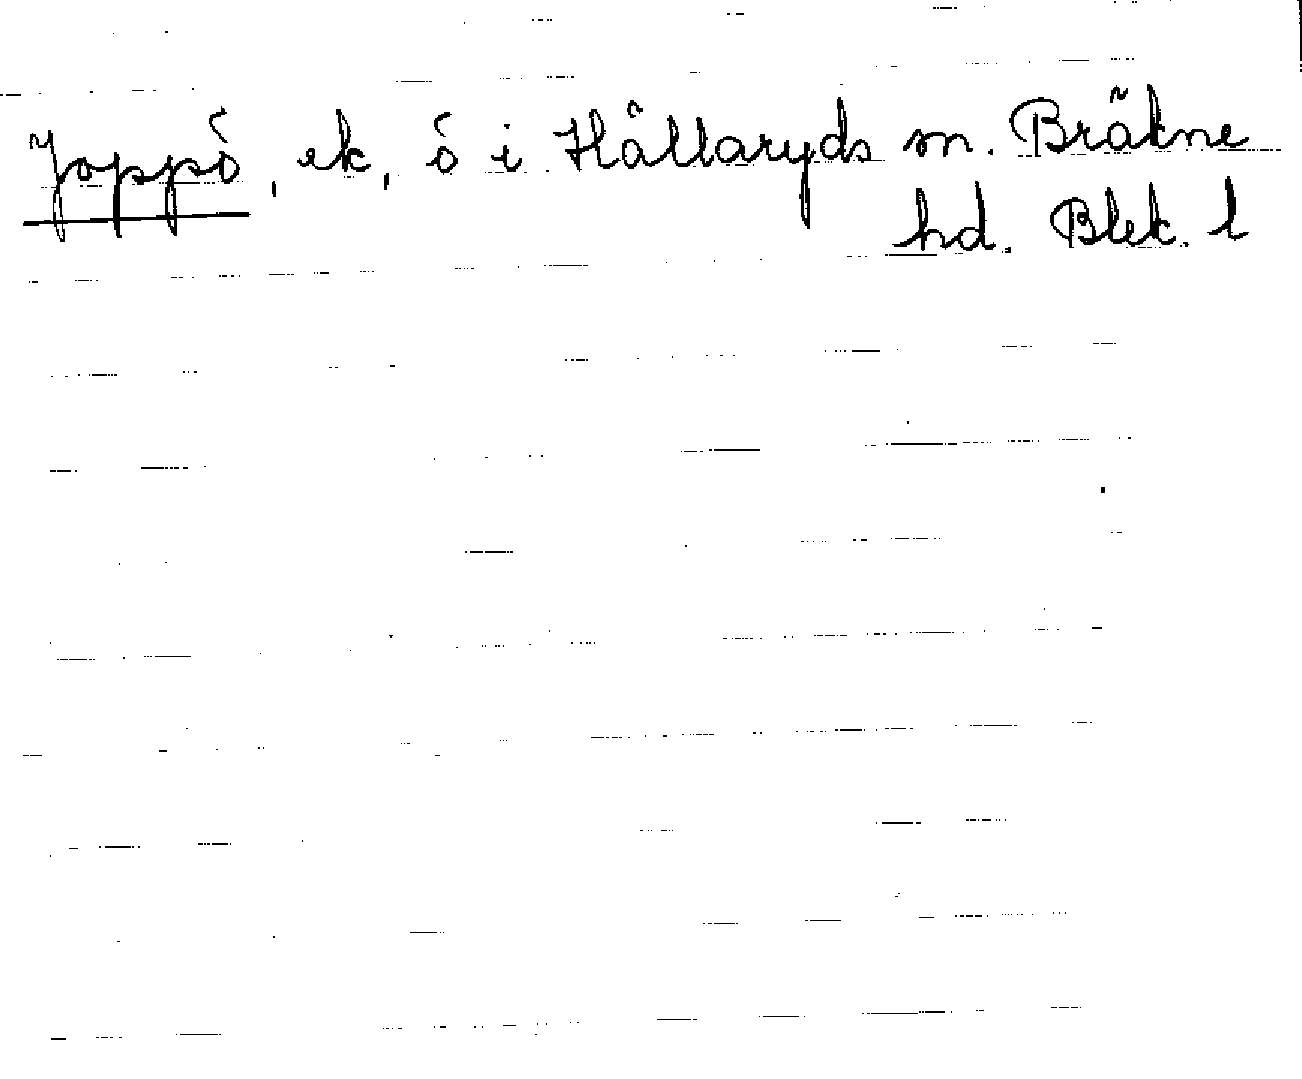 Joppö, ek, ö i Hällaryds sn. Bräkne
hd. Blek. l